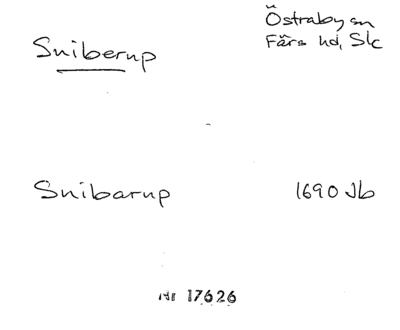 Sniberup
Östraby sn
Färs hd, Slc
Snibarup 1690 Jb
Nr 17626